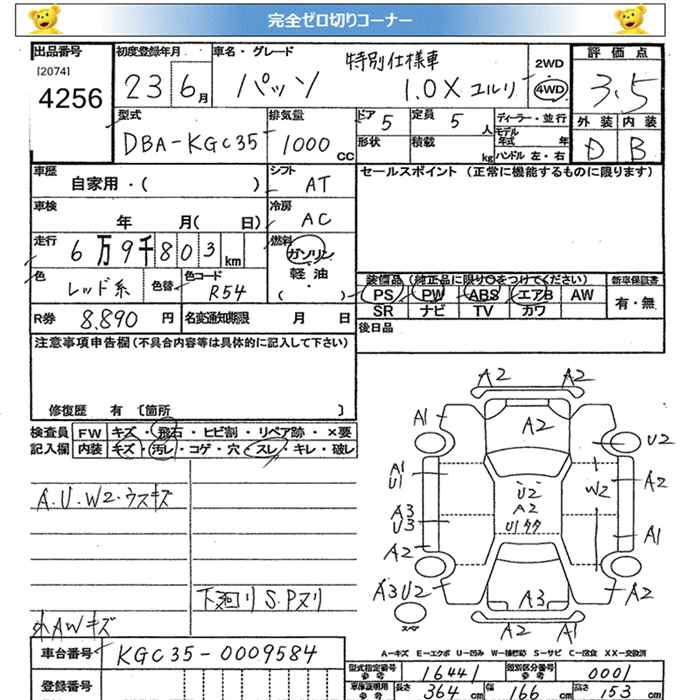 完全ゼロ切りコーナー
出品番号
[2074]
4256
初度登録年月
23 6月
車名・グレード
パッソ
特別仕様車
1.0X ユルリ
2WD
4WD
評価点
3.5
外装 内装
D B
型式
DBA-KGC35
排気量
1000 CC
ドア 5
定員 5 人
形状
積載 kg
ディーラー・並行
モデル年式 年
ハンドル 左・右
車歴
自家用・( )
シフト
AT
セールスポイント (正常に機能するものに限ります)
車検
年 月( 日)
冷房
AC
走行
6万9千803km
燃料
ガソリン
軽油
( )
色
レッド系
色替
色コード
R54
装備品 (純正品に限り○をつけてください)
新車保証書
PS PW ABS エアB AW
SR ナビ TV カワ
有・無
R券 8.890円
名変通知期限 月 日
後日品
注意事項申告欄(不具合内容等は具体的に記入して下さい)
修復歴 有 〔箇所 〕
検査員 FW キズ・飛石・ヒビ割・リペア跡・×要
記入欄 内装 キズ・汚レ・コゲ・穴・スレ・キレ・破レ
A.U.W2.ウスキズ
下廻り S.Pヌリ
AWキズ
A2 A2
A1 A2
U2
A1
U1
U2
A2
W2 A2
A3
U3
U1
A1
A2
A3U2 A3 A2
スペア
A2 A1
A-キズ E-エクボ U-凹み W-補修跡 S-サビ C-腐食 XX-交換済
車台番号 KGC35-0009584
登録番号
型式指定番号
参考
16441
類別区分番号
参考
0001
車庫証明用
参考
長さ 364 cm
幅 166 cm
高さ 153 cm